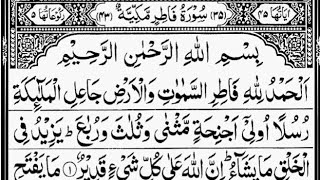 اٰيَاتُهَا ٤٥ (٣٥) سُوْرَةُ فَاطِرٍ مَكِّيَّةٌ (٤٣) رُكُوْعَاتُهَا ٥
بِسْمِ اللّٰهِ الرَّحْمٰنِ الرَّحِيْمِ
اَلْحَمْدُ لِلّٰهِ فَاطِرِ السَّمٰوٰتِ وَالْاَرْضِ جَاعِلِ الْمَلٰٓئِكَةِ
رُسُلًا اُولِىْٓ اَجْنِحَةٍ مَّثْنٰى وَثُلٰثَ وَرُبٰعَ ؕ يَزِيْدُ فِى
الْخَلْقِ مَا يَشَآءُ ؕ اِنَّ اللّٰهَ عَلٰى كُلِّ شَىْءٍ قَدِيْرٌ ﴿١﴾ مَا يَفْتَحِ